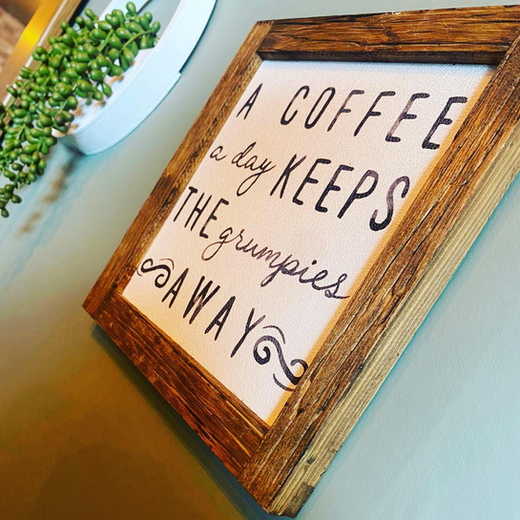 A COFFEE
a day KEEPS
THE grumpies
AWAY